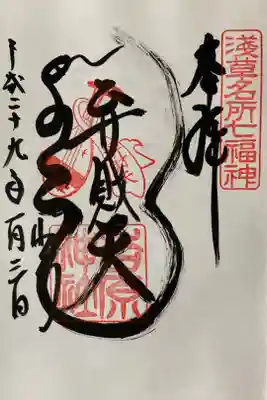 淺草名所七福神
奉拝
弁財天
吉原神社
平成二十九年一月三日